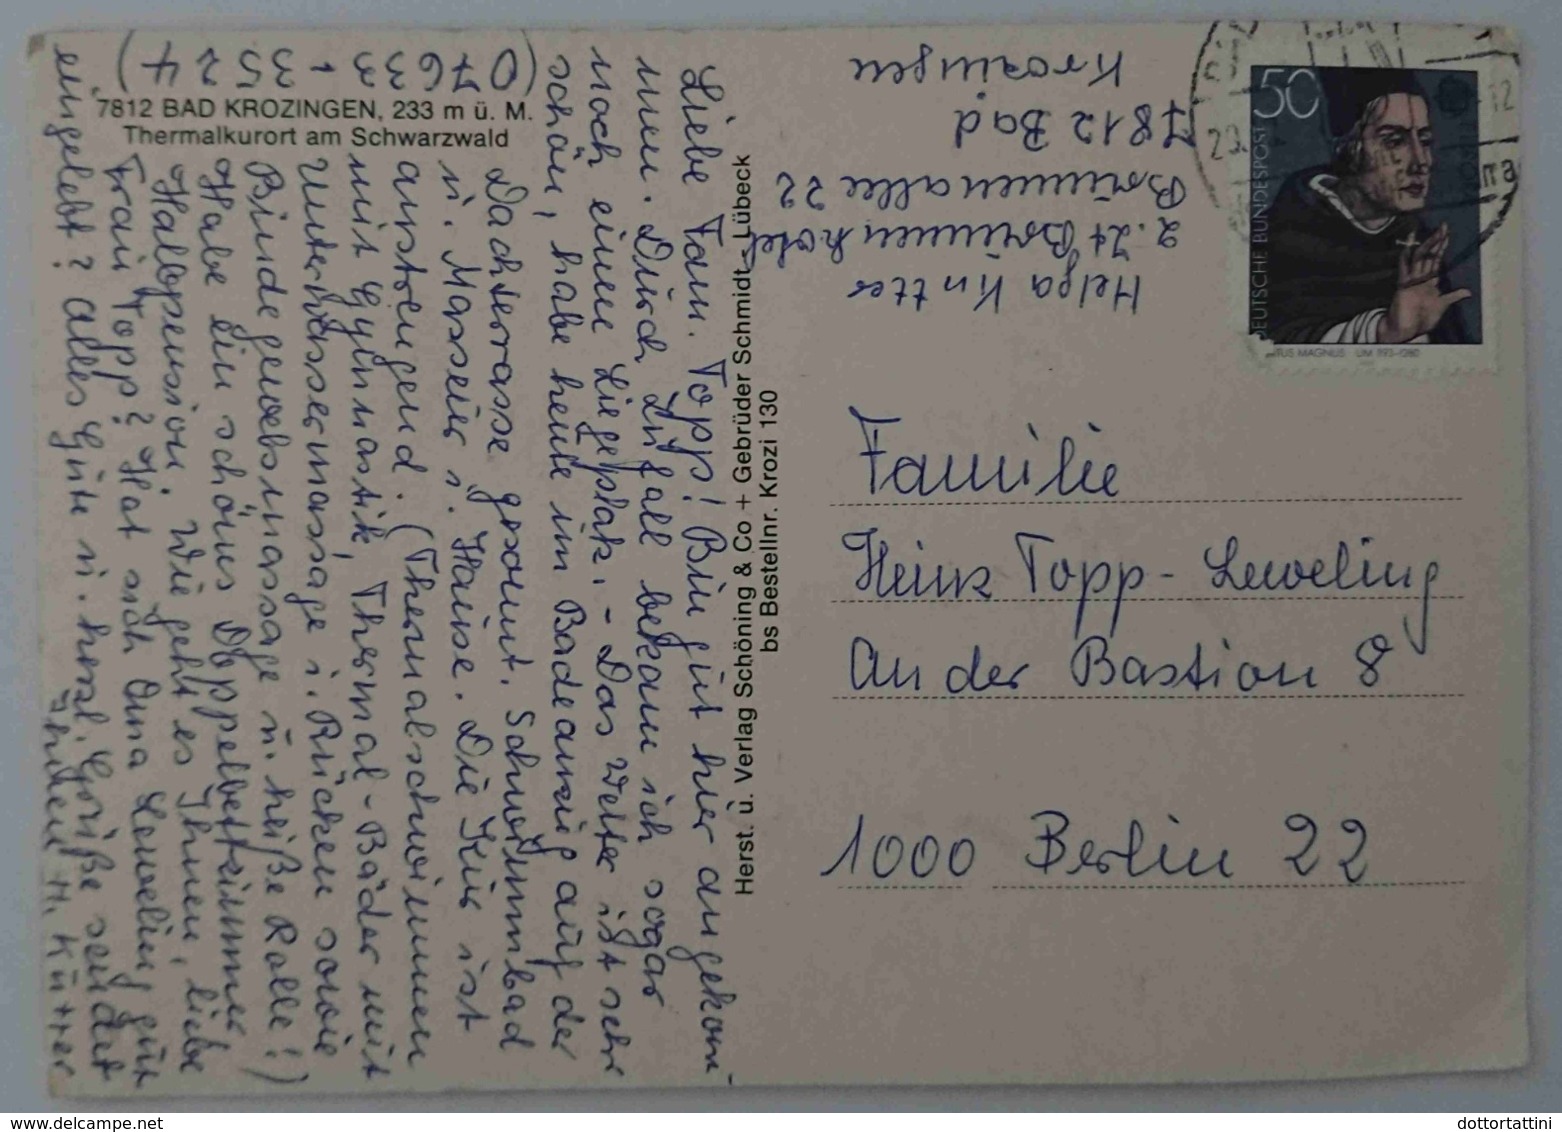 7812 BAD KROZINGEN, 233 m ü. M.
Thermalkurort am Schwarzwald
Liebe Fam. Topp! Bin gut hier angekom-
men. Durch Zufall bekam ich sogar
noch einen Liegeplatz. - Das Wetter ist sehr
schön, habe heute im Badeanzug auf der
Dachterrasse gesonnt. Schwimmbad
u. Masseur i. Hause. Die Kur ist
anstrengend. (Thermalschwimmen
mit Gymnastik, Thermal-Bäder mit
Unterwassermassage i. Rücken sowie
Bindegewebsmassage u. heiße Rolle!)
Habe ein schönes Doppelbettzimmer
Halbpension. Wie geht es Ihnen, liebe
Frau Topp? Hat sich Oma Leweling gut
eingelebt? Alles Gute u. herzl. Grüße sendet
Ihnen H. Kutter
(07633
+
3524)
Herst. u. Verlag Schöning & Co + Gebrüder Schmidt - Lübeck
bs Bestellnr. Krozi 130
Helga Kutter
z. Zt Brunnenhotel
Brunnenallee 22
7812 Bad
Krozingen
50
DEUTSCHE BUNDESPOST
TUS MAGNUS UM 1193-1280
12
Familie
Heinz Topp-Leweling
An der Bastion 8
1000 Berlin 22
dottortattini